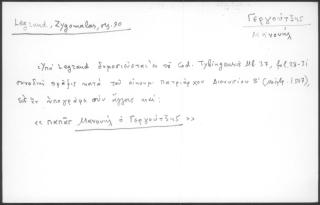 Legrand, Zygomalas, σελ. 90
Γεργούτζης
Μανουήλ
Ὑπὸ Legrand δημοσιεύεται ἐκ τοῦ Cod. Tybingensis Mb 37, fol. 28-31
συνοδικὴ πρᾶξις κατὰ τοῦ οἰκουμ. πατριάρχου Διονυσίου Β'
ὑπογράφει σὺν ἄλλοις καὶ:
« παπᾶς Μανουὴλ ὁ Γεργούτζης »